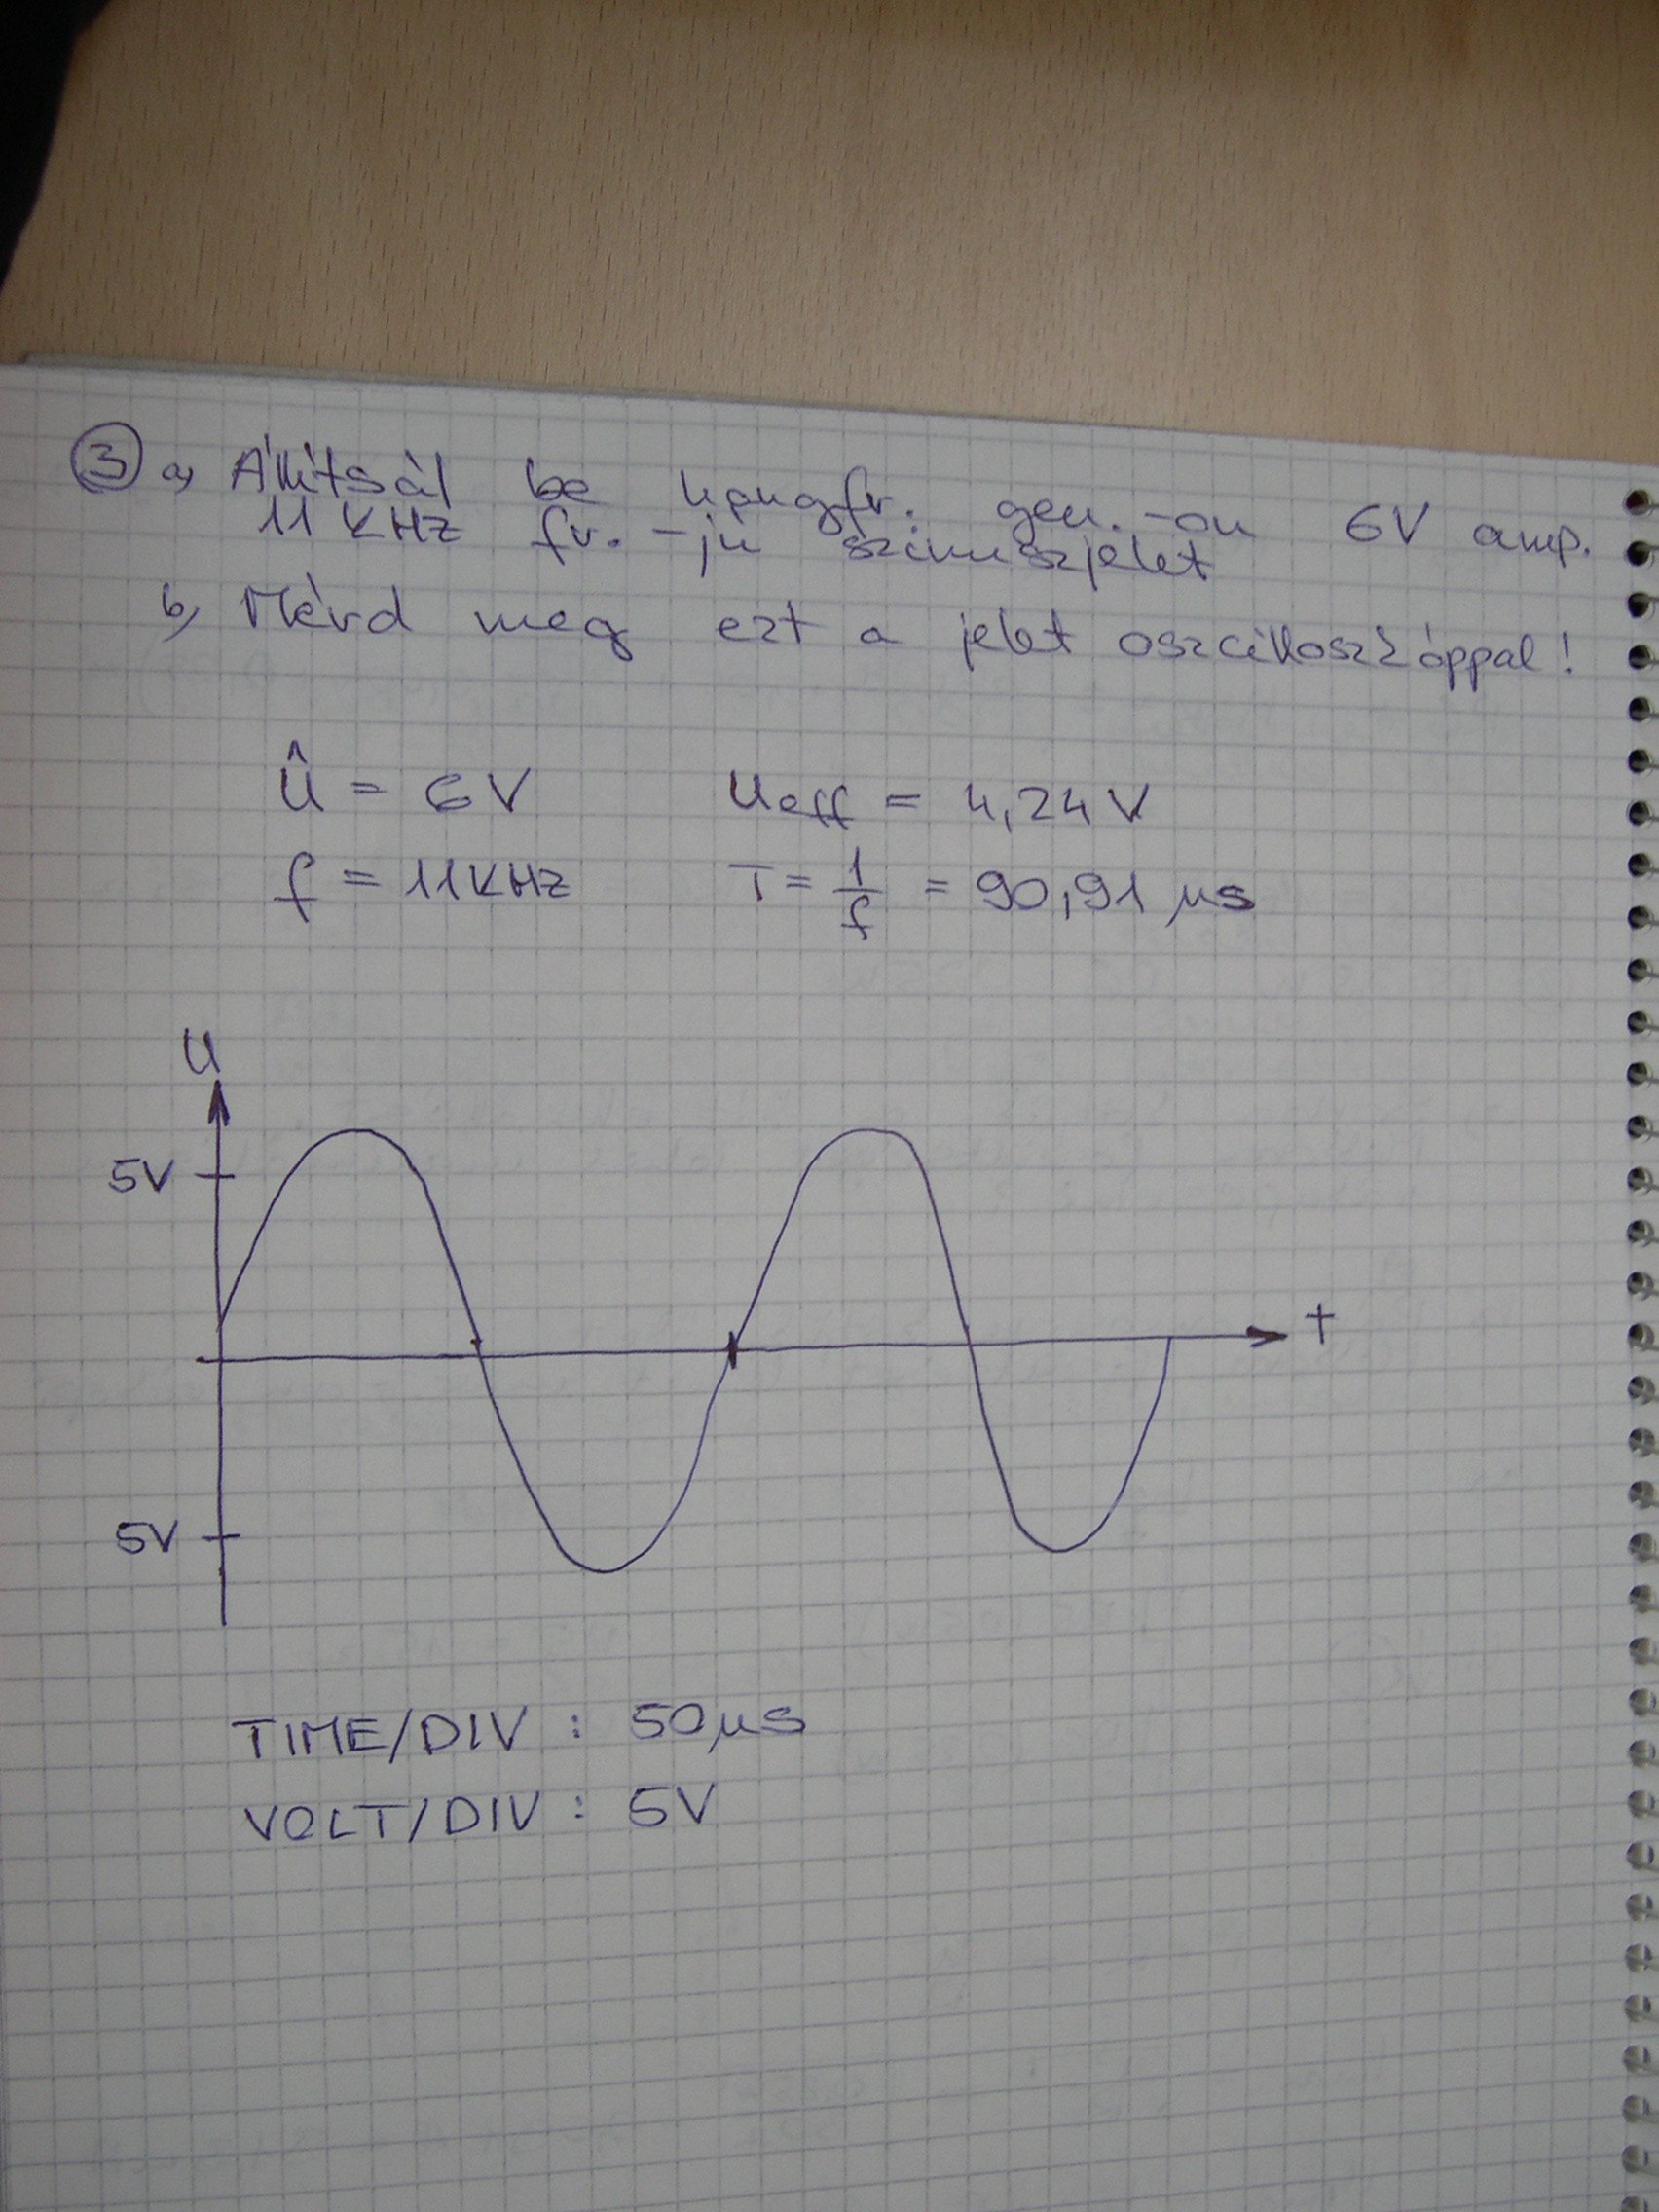 3 a, Állítsál be hangfr. gen.-on 6V amp.
11 KHz fr. -jú szinuszjelet
b, Mérd meg ezt a jelet oszcilloszkóppal!
Û = 6V Ueff = 4,24V
f = 11KHz T = 1/f = 90,91 μs
U
5V
t
5V
TIME/DIV : 50μs
VOLT/DIV : 5V